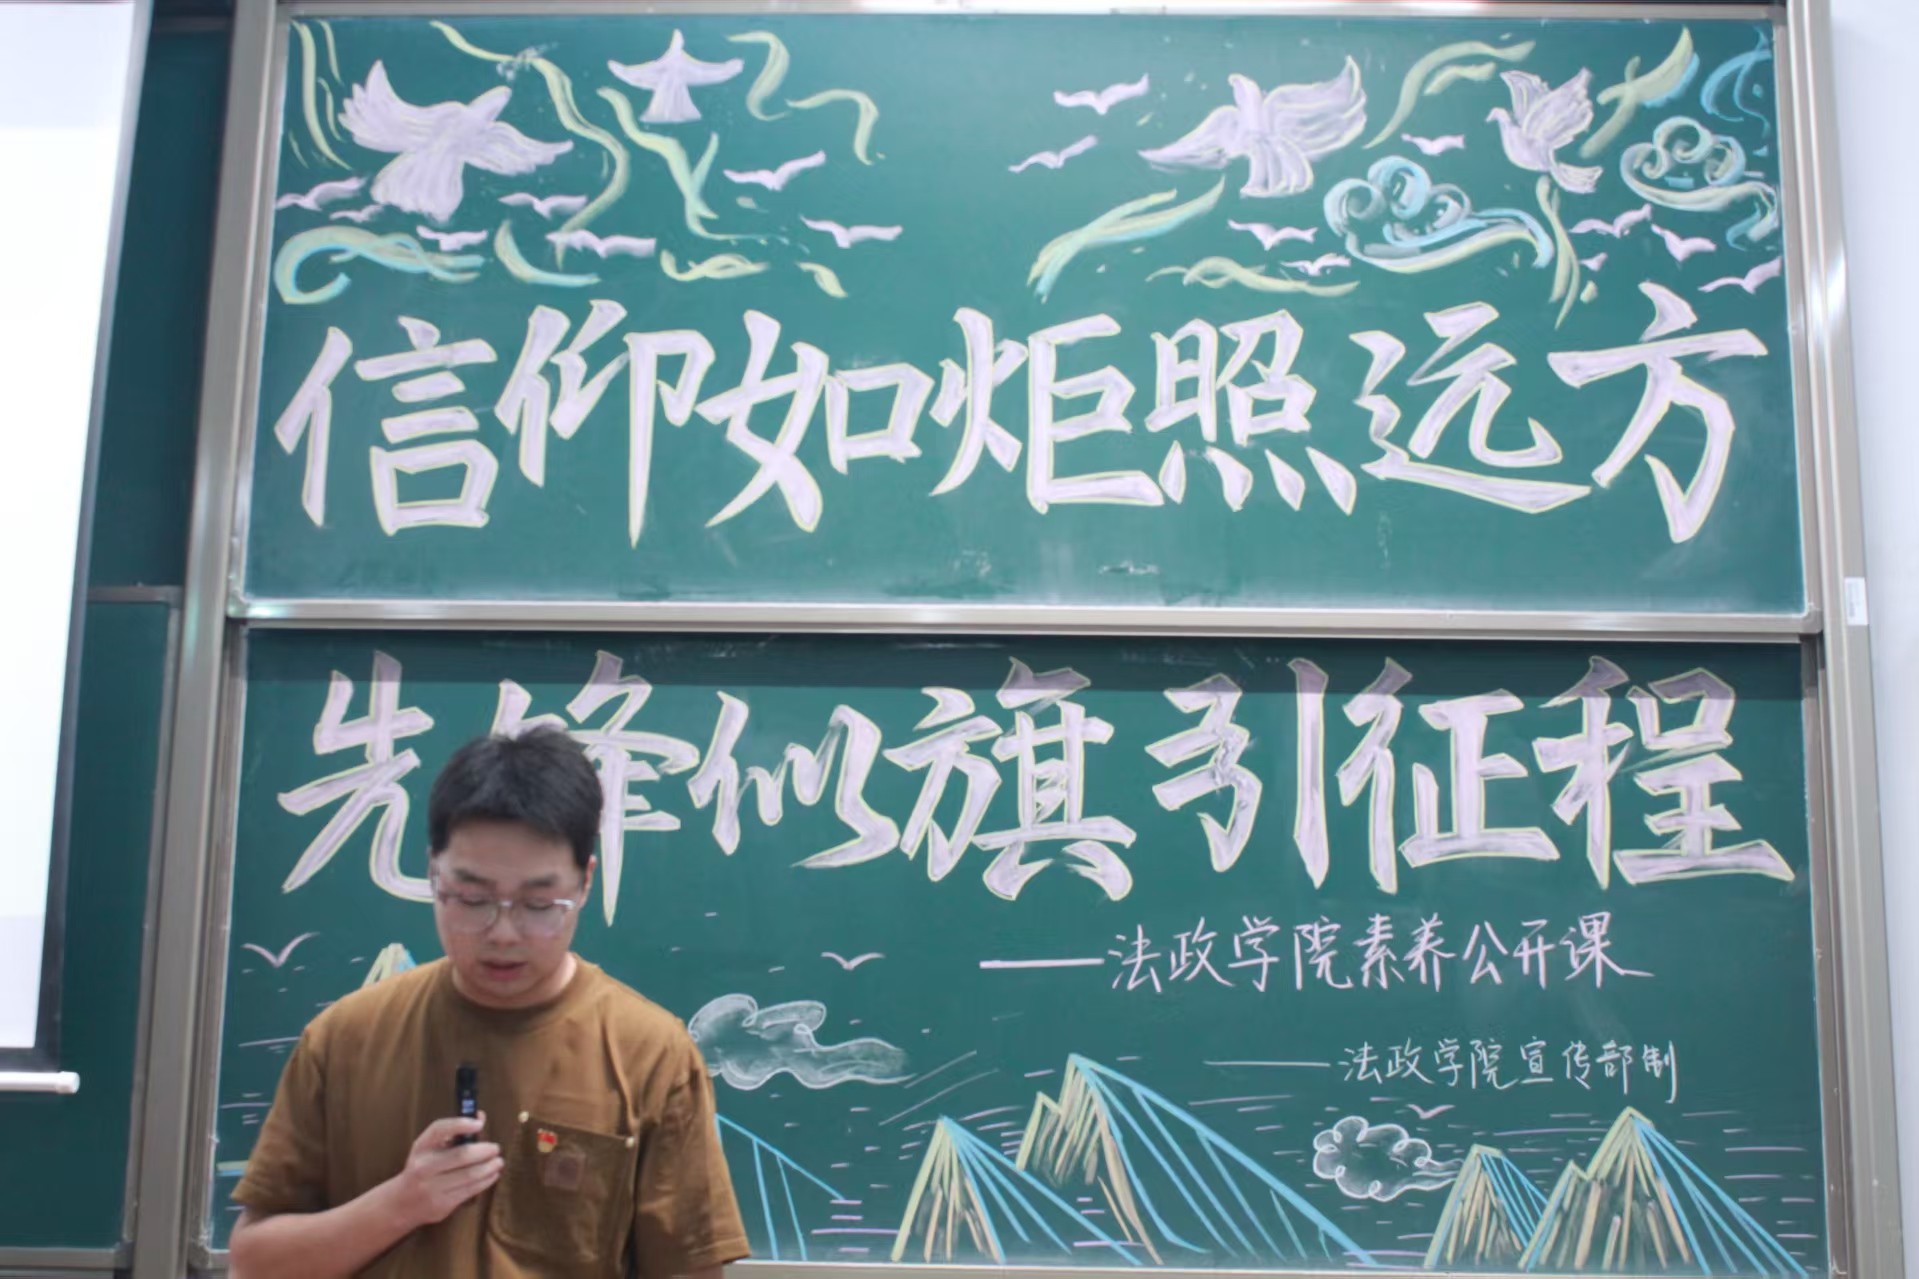 信仰如炬照远方
先锋似旗引征程
——法政学院素养公开课
——法政学院宣传部制